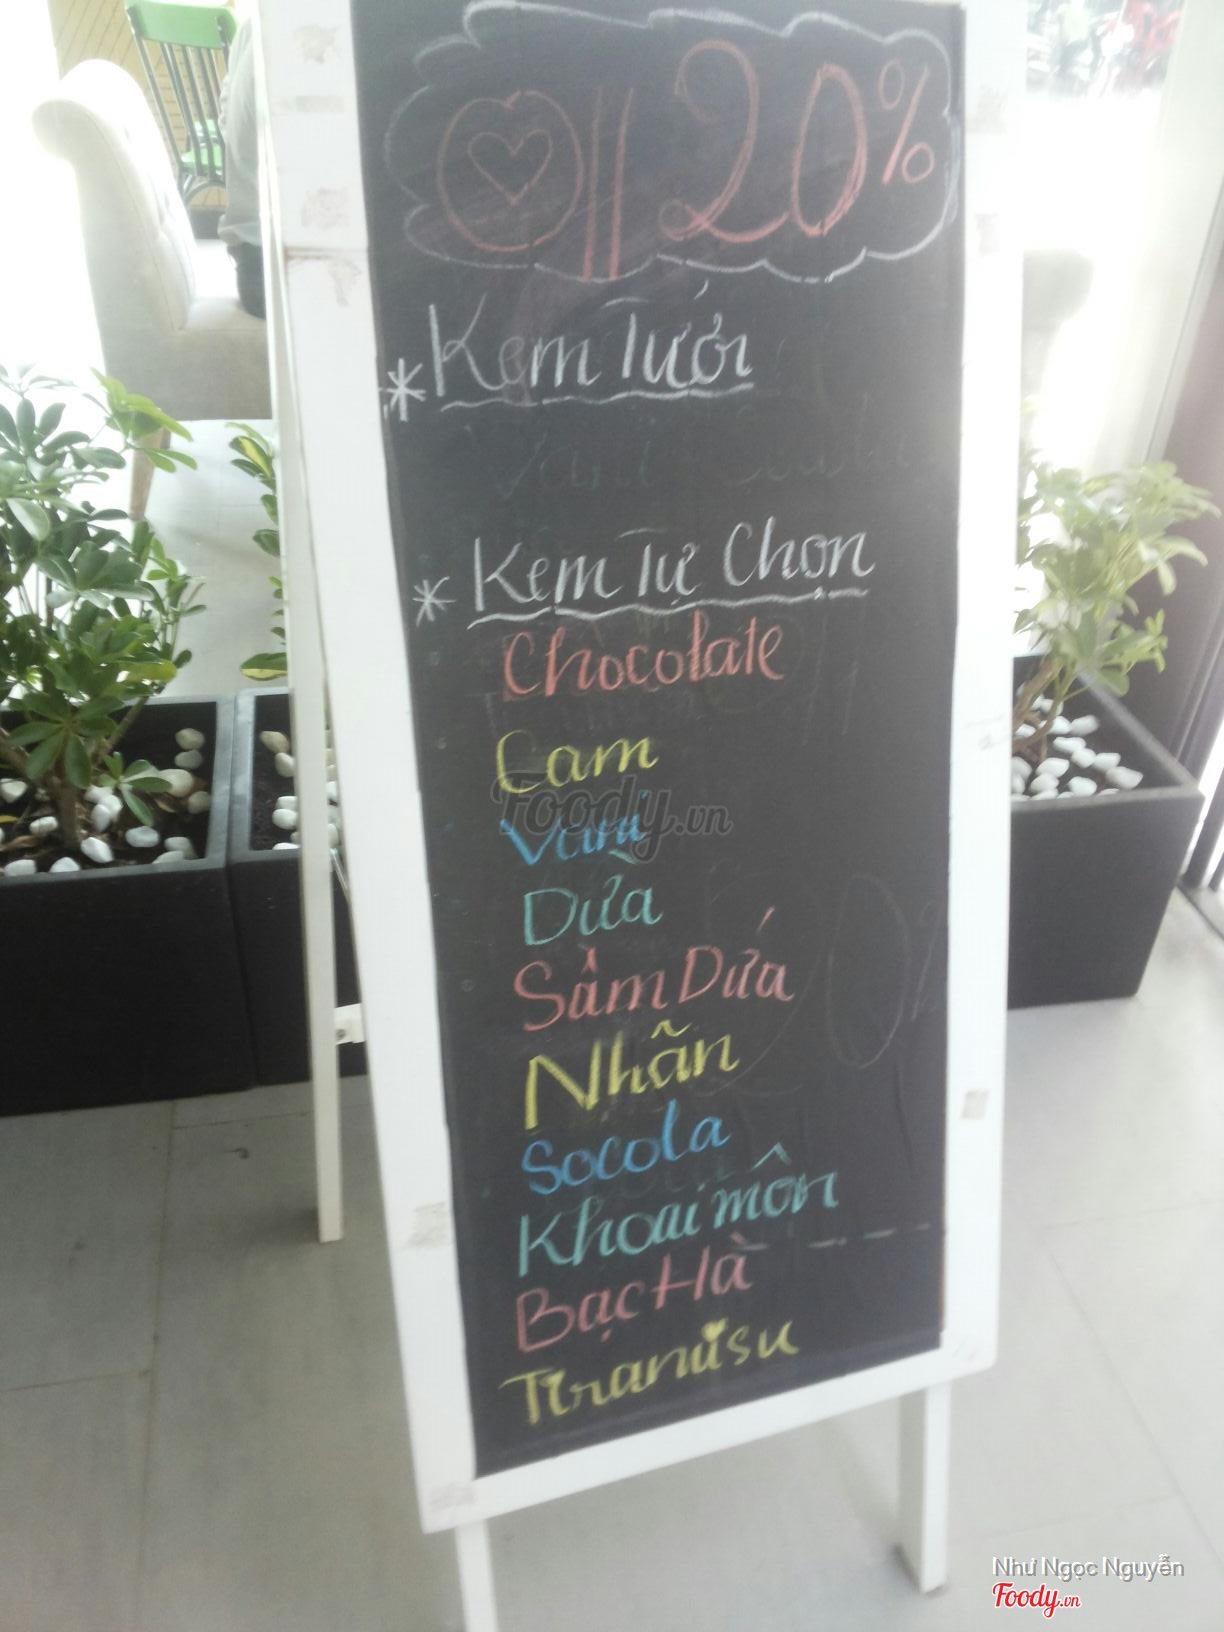 Off 20%
* Kem Tươi
* Kem Tự Chọn
Chocolate
Cam
Foody.vn
Vani
Dừa
Sâm Dứa
Nhãn
Socola
Khoai môn
Bạc Hà
Tiramisu
Như Ngọc Nguyễn
Foody.vn